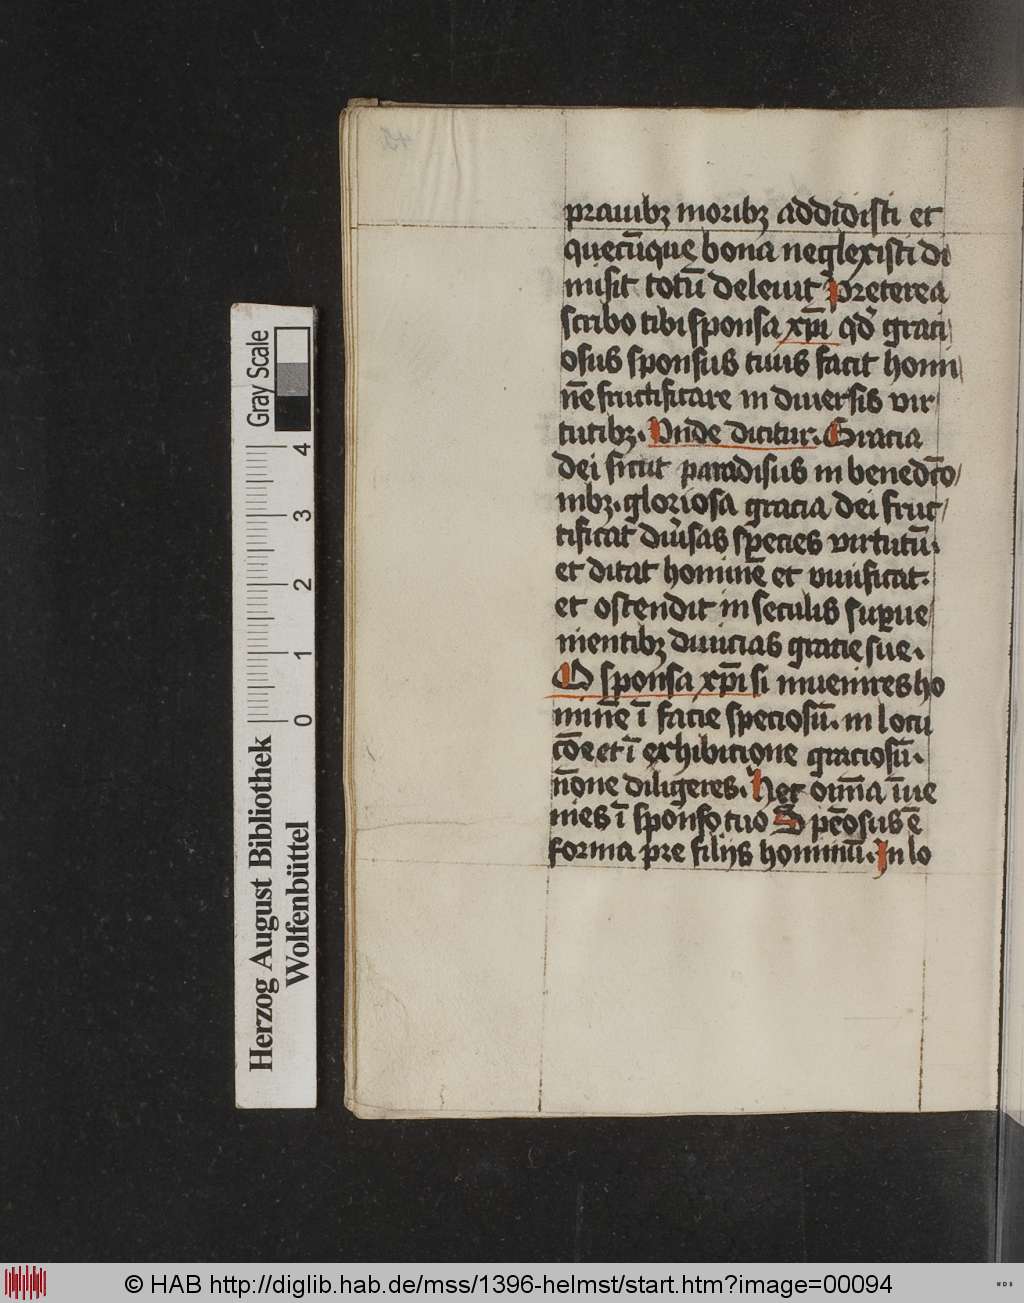 prauibꝫ moribꝫ addidisti et
quecūque bona neglexisti di
misit totū deleuit Preterea
scribo tibi sponsa xp̄i qd̓ graci
osus sponsus tuus facit homi
nē fructificare in diuersis vir
tutibꝫ. Vn̄de dicitur. Gracia
dei sicut paradisus in benedcō
nibꝫ. gloriosa gracia dei fruc
tificat diu̓sas species virtutū.
et ditat hominē et viuificat.
et ostendit in seculis suꝑue
nientibꝫ diuicias gracie sue.
O sponsa xp̄i si inuenires ho
minē ī facie speciosū. in locu
cōe et ī exhibicione graciosū.
nōne diligeres. Hec om̄ia īue
nies ī sponso tuo Speōsus ē
forma pre filijs hominū. In lo
45
Herzog August Bibliothek
Wolfenbüttel
0 1 2 3 4
Gray Scale
© HAB http://diglib.hab.de/mss/1396-helmst/start.htm?image=00094